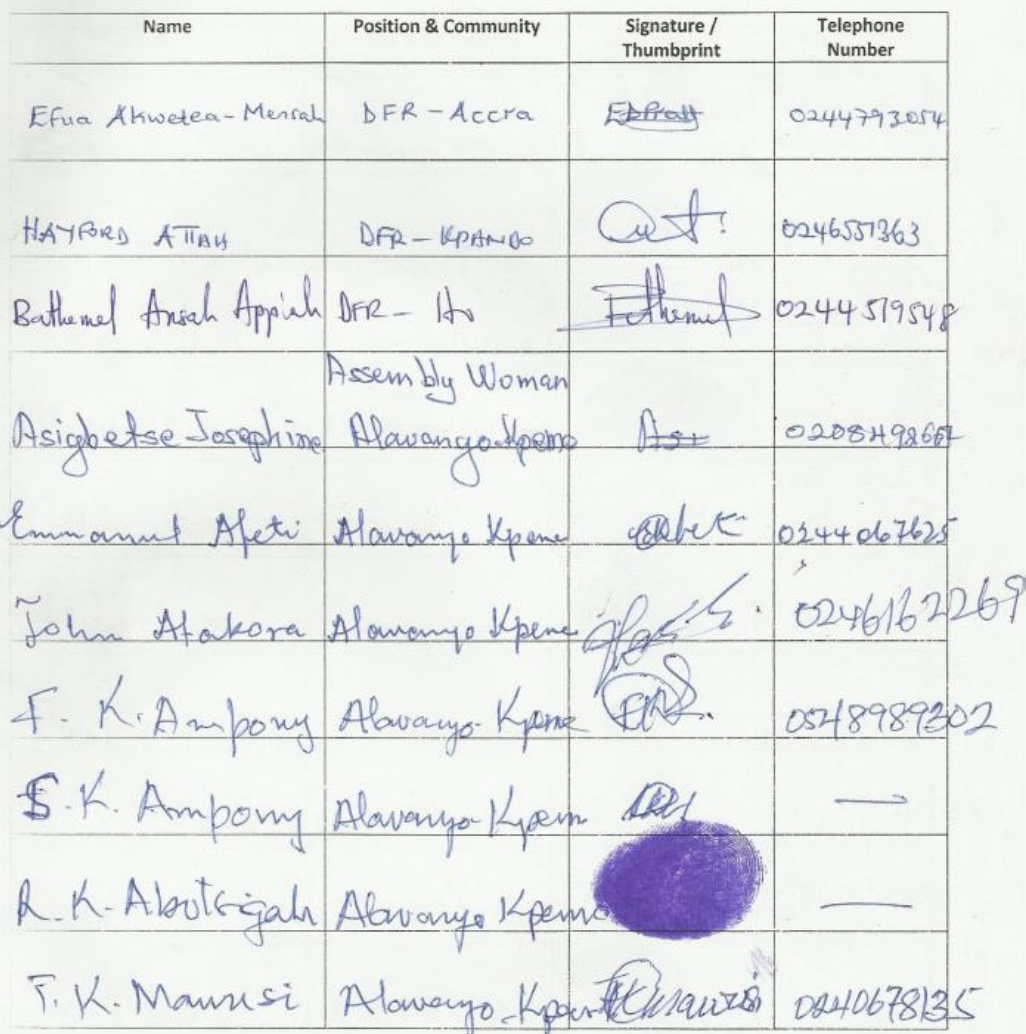 Name Position & Community Signature / Thumbprint Telephone Number
Efua Akwetea-Mensah DFR - Accra 0244793054
HAYFORD ATTAH DFR - KPANDO 0246551363
Bathemel Ansah Appiah DFR - Ho 0244519548
Assembly Woman
Asigbetse Josephine Alavanyo Kpeme
Emmanuel Afeti Alavanyo Kpeme 0244067625
John Atakora Alavanyo Kpeme 0246162269
F. K. Ampony Alavanyo-Kpeme 0548989302
S. K. Ampony Alavanyo-Kpem —
R. K. Abotsigah Alavanyo Kpeme —
T. K. Mawusi Alavanyo-Kpem 0240678135